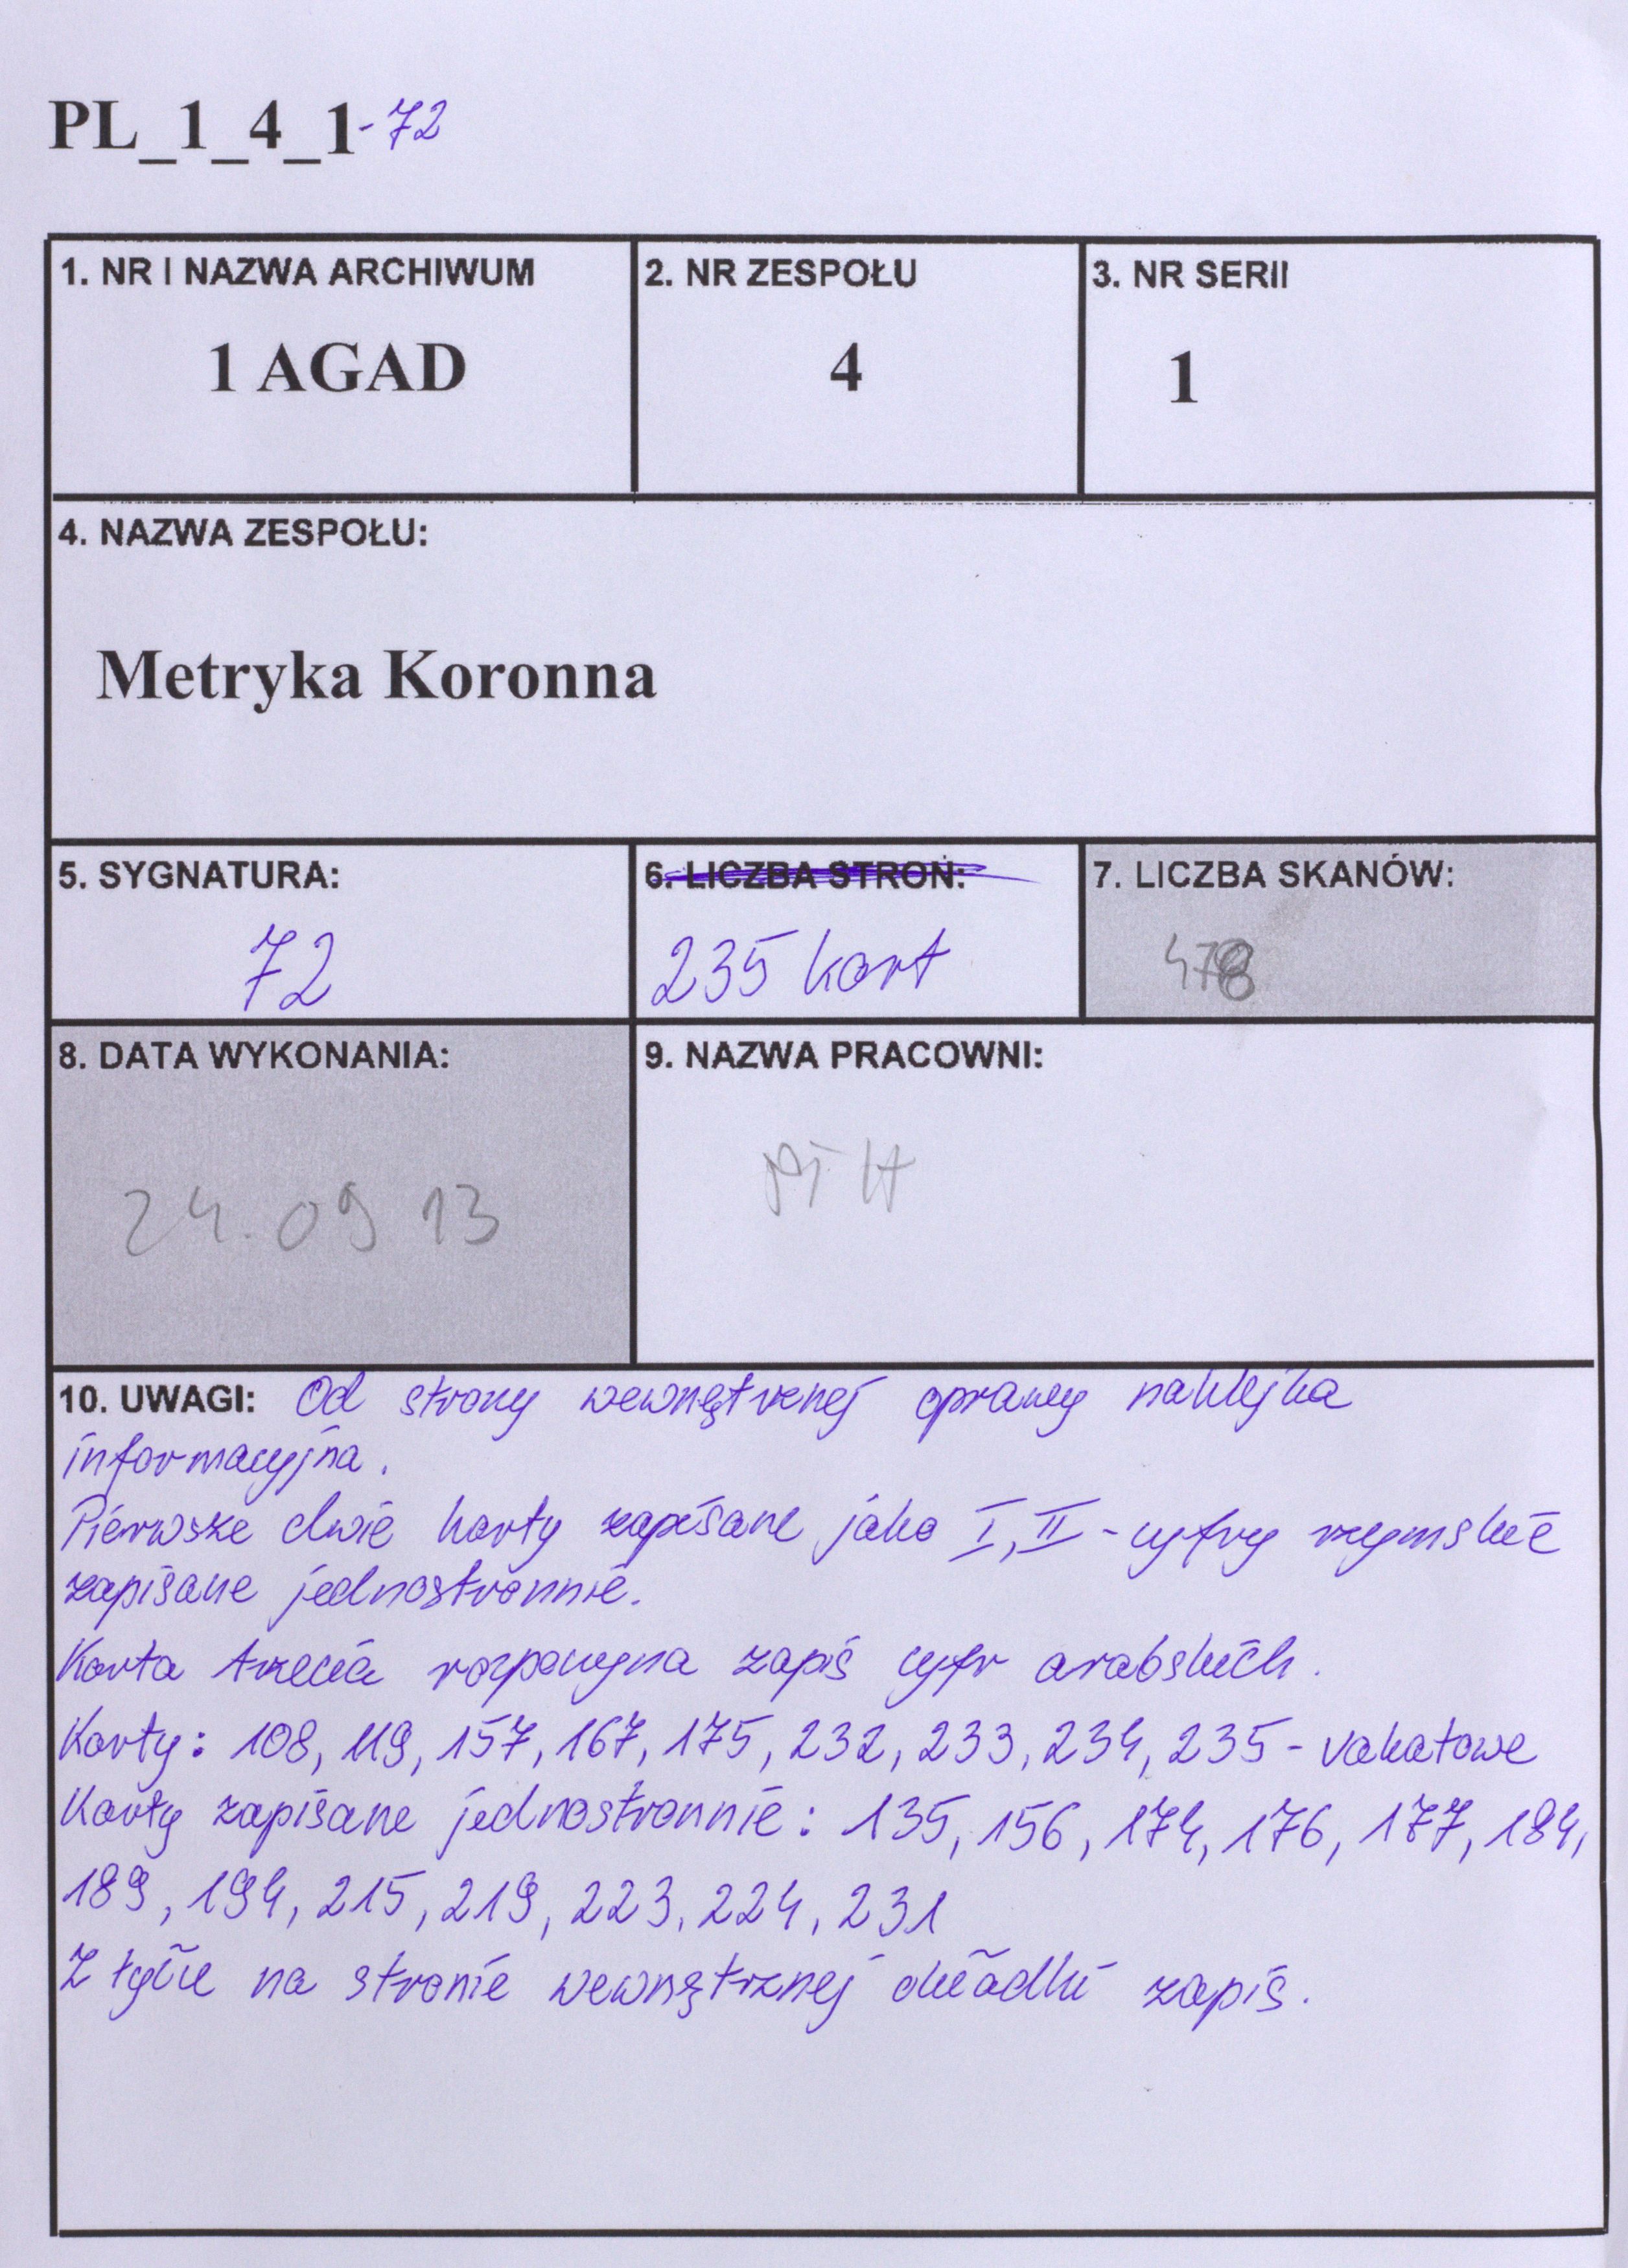 PL_1_4_1-72
1. NR I NAZWA ARCHIWUM
1 AGAD
2. NR ZESPOŁU
4
3. NR SERII
1
4. NAZWA ZESPOŁU:
Metryka Koronna
5. SYGNATURA:
72
6. LICZBA STRON:
235 kart
7. LICZBA SKANÓW:
478
8. DATA WYKONANIA:
24.09 13
9. NAZWA PRACOWNI:
10. UWAGI: Od strony wewnętrznej oprawy naklejka
informacyjna.
Pierwsze dwie karty zapisane jako I, II - cyfry rzymskie
zapisane jednostronnie.
Karta trzecia rozpoczyna zapis cyfr arabskich.
Karty: 108, 119, 157, 167, 175, 232, 233, 234, 235 - vakatowe
Karty zapisane jednostronnie: 135, 156, 174, 176, 177, 184,
189, 194, 215, 219, 223, 224, 231
Z tyłu na stronie wewnętrznej okładki zapis.